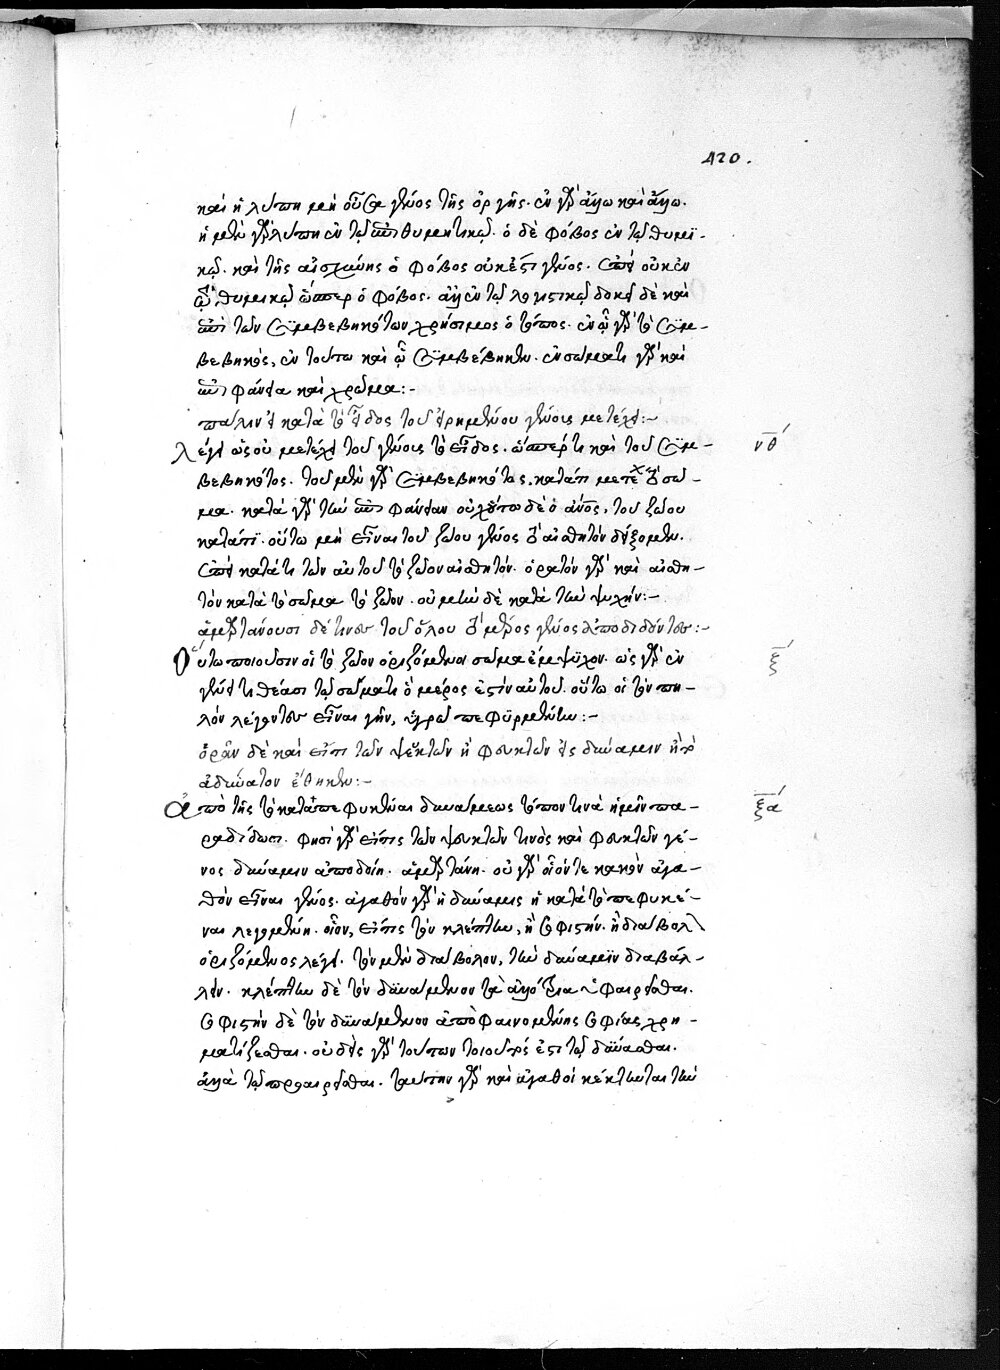 420.
καὶ ἡ λύπη μὴ οὖσα γένος τῆς ὀργῆς. ἐν γὰρ ἄλλῳ καὶ ἄλλῳ.
ἡ μὲν γὰρ λύπη ἐν τῷ ἐπιθυμητικῷ. ὁ δὲ φόβος ἐν τῷ θυμι-
κῷ. καὶ τῆς αἰσχύνης ὁ φόβος οὐκ ἔστι γένος. ἐπεὶ οὐκ ἐν
τῷ θυμικῷ ὥσπερ ὁ φόβος. ἀλλ' ἐν τῷ λογιστικῷ δοκεῖ δὲ καὶ
ἐπὶ τῶν συμβεβηκότων χρήσιμος ὁ τόπος. ἐν ᾧ γὰρ τὸ συμ-
βεβηκός, ἐν τούτω καὶ ᾧ συμβέβηκεν. ἐν σώματι γὰρ καὶ
ἐπιφάνεια καὶ χρῶμα:-
πάλιν εἰ κατὰ τὸ εἶδος τοῦ εἰρημένου γένους μετέχει:-
λέγει ὡς οὐ μετέχει τοῦ γένους τὸ εἶδος. ὥσπερ ἔτι καὶ τοῦ συμ-
νθ
βεβηκότος. τοῦ μὲν γὰρ συμβεβηκότος, κατά τι μετέχει τὸ σῶ-
μα. κατὰ γὰρ τὴν ἐπιφάνειαν οὐχ οὕτω δὲ ὁ ἄνος, τοῦ ζώου
κατά τι. οὕτω μὴ εἶναι τοῦ ζώου γένος τὸ αἰσθητὸν δείξομεν.
ἐπεὶ κατά τι τῶν αὐτοῦ τὸ ζῶον αἰσθητόν. ὁρατὸν γὰρ καὶ αἰσθη-
τὸν κατὰ τὸ σῶμα τὸ ζῶον. οὐ μὴν δὲ κατὰ τὴν ψυχήν:-
ἁμαρτάνουσι δέ τινες τοῦ ὅλου τὸ μέρος γένος ἀποδιδόντες:-
Οὕτω ποιοῦσιν οἱ τὸ ζῶον ὁριζόμενοι σῶμα ἔμψυχον. ὡς γὰρ ἐν
ξ
γένει τιθέασι τῷ σώματι ὃ μέρος ἐστὶν αὐτοῦ. οὕτω οἱ τὸν πη-
λὸν λέγοντες εἶναι γῆν, ὑγρῷ πεφυρμένην:-
ὁρᾶν δὲ καὶ εἴ τι τῶν ψεκτῶν ἢ φευκτῶν εἰς δύναμιν ἢ τὸ
ἀδύνατον ἔθηκεν:-
ἀπὸ τῆς τὸ κατὰ πεφυκέναι δυνάμεως τόπον τινὰ ἡμῖν πα-
ξα
ραδίδωσι. φησὶ γὰρ εἴ τις τῶν ψεκτῶν τινὸς καὶ φευκτῶν γέ-
νος δύναμιν ἀποδοίη. ἁμαρτάνει. οὐ γὰρ οἷόν τε κακὸν ἀγα-
θὸν εἶναι γένος. ἀγαθὸν γὰρ ἡ δύναμις ἡ κατὰ τὸ πεφυκέ-
ναι λεγομένη. οἷον, εἴ τις τὸν κλέπτην, ἢ σοφιστὴν. ἢ διάβολον
ὁριζόμενος λέγει. τὸν μὲν διάβολον, τὴν δύναμιν διαβάλ-
λειν. κλέπτην δὲ τὸν δυνάμενον τὰ ἀλλότρια ὑφαιρεῖσθαι.
σοφιστὴν δὲ τὸν δυνάμενον ἀπὸ φαινομένης σοφίας χρη-
ματίζεσθαι. οὐδεὶς γὰρ τούτων τοιοῦτός ἐστι τῷ δύνασθαι.
ἀλλὰ τῷ προαιρεῖσθαι. ταύτην γὰρ καὶ ἀγαθοὶ κέκτηνται τὴν